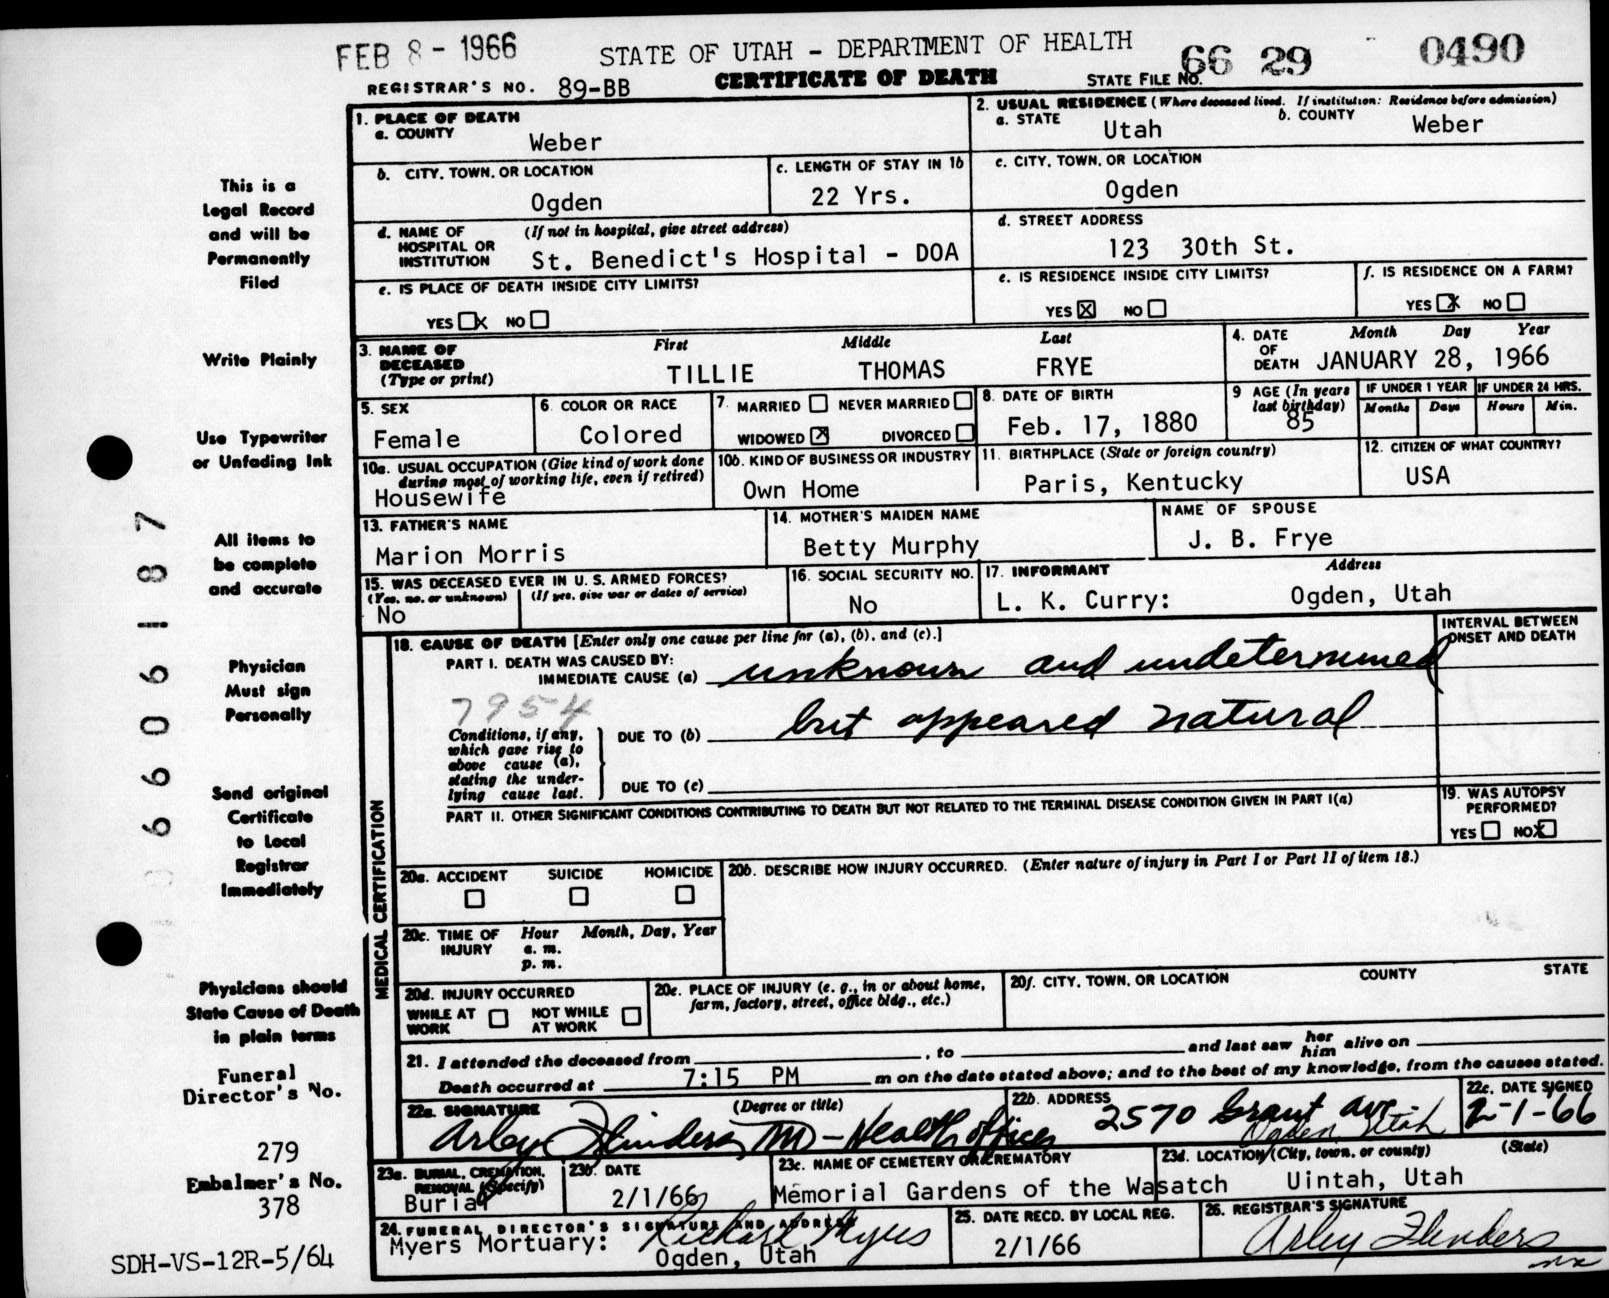 FEB 8 - 1966
STATE OF UTAH - DEPARTMENT OF HEALTH
66 29 0490
REGISTRAR'S NO. 89-BB
CERTIFICATE OF DEATH
STATE FILE NO.
1. PLACE OF DEATH
a. COUNTY
Weber
2. USUAL RESIDENCE (Where deceased lived. If institution: Residence before admission)
a. STATE Utah b. COUNTY Weber
b. CITY, TOWN, OR LOCATION
Ogden
c. LENGTH OF STAY IN 1b
22 Yrs.
c. CITY, TOWN, OR LOCATION
Ogden
d. NAME OF HOSPITAL OR INSTITUTION (If not in hospital, give street address)
St. Benedict's Hospital - DOA
d. STREET ADDRESS
123 30th St.
e. IS PLACE OF DEATH INSIDE CITY LIMITS?
YES X NO
e. IS RESIDENCE INSIDE CITY LIMITS?
YES X NO
f. IS RESIDENCE ON A FARM?
YES X NO
3. NAME OF DECEASED (Type or print)
First Middle Last
TILLIE THOMAS FRYE
4. DATE OF DEATH
Month Day Year
JANUARY 28, 1966
5. SEX
Female
6. COLOR OR RACE
Colored
7. MARRIED NEVER MARRIED
WIDOWED X DIVORCED
8. DATE OF BIRTH
Feb. 17, 1880
9 AGE (In years last birthday)
85
IF UNDER 1 YEAR
Months Days
IF UNDER 24 HRS.
Hours Min.
10a. USUAL OCCUPATION (Give kind of work done during most of working life, even if retired)
Housewife
10b. KIND OF BUSINESS OR INDUSTRY
Own Home
11. BIRTHPLACE (State or foreign country)
Paris, Kentucky
12. CITIZEN OF WHAT COUNTRY?
USA
13. FATHER'S NAME
Marion Morris
14. MOTHER'S MAIDEN NAME
Betty Murphy
NAME OF SPOUSE
J. B. Frye
15. WAS DECEASED EVER IN U. S. ARMED FORCES?
(Yes, no, or unknown) (If yes, give war or dates of service)
No
16. SOCIAL SECURITY NO.
No
17. INFORMANT Address
L. K. Curry: Ogden, Utah
18. CAUSE OF DEATH [Enter only one cause per line for (a), (b), and (c).]
INTERVAL BETWEEN ONSET AND DEATH
PART I. DEATH WAS CAUSED BY:
IMMEDIATE CAUSE (a) unknown and undetermined
7954
Conditions, if any, which gave rise to above cause (a), stating the underlying cause last.
DUE TO (b) but appeared natural
DUE TO (c)
PART II. OTHER SIGNIFICANT CONDITIONS CONTRIBUTING TO DEATH BUT NOT RELATED TO THE TERMINAL DISEASE CONDITION GIVEN IN PART I(a)
19. WAS AUTOPSY PERFORMED?
YES NO X
MEDICAL CERTIFICATION
20a. ACCIDENT SUICIDE HOMICIDE
20b. DESCRIBE HOW INJURY OCCURRED. (Enter nature of injury in Part I or Part II of item 18.)
20c. TIME OF INJURY Hour Month, Day, Year
a. m.
p. m.
20d. INJURY OCCURRED
WHILE AT WORK NOT WHILE AT WORK
20e. PLACE OF INJURY (e. g., in or about home, farm, factory, street, office bldg., etc.)
20f. CITY, TOWN, OR LOCATION COUNTY STATE
21. I attended the deceased from , to and last saw her him alive on
Death occurred at 7:15 PM m on the date stated above; and to the best of my knowledge, from the causes stated.
22a. SIGNATURE (Degree or title)
Arley Flinders, MD - Health officer
22b. ADDRESS
2570 Grant ave.
Ogden, Utah
22c. DATE SIGNED
2-1-66
23a. BURIAL, CREMATION, REMOVAL (Specify)
Burial
23b. DATE
2/1/66
23c. NAME OF CEMETERY OR CREMATORY
Memorial Gardens of the Wasatch
23d. LOCATION (City, town, or county) (State)
Uintah, Utah
24. FUNERAL DIRECTOR'S SIGNATURE AND ADDRESS
Myers Mortuary: Richard Myers
Ogden, Utah
25. DATE RECD. BY LOCAL REG.
2/1/66
26. REGISTRAR'S SIGNATURE
Arley Flinders
This is a
Legal Record
and will be
Permanently
Filed
Write Plainly
Use Typewriter
or Unfading Ink
All items to
be complete
and accurate
Physician
Must sign
Personally
Send original
Certificate
to Local
Registrar
Immediately
Physicians should
State Cause of Death
in plain terms
Funeral
Director's No.
279
Embalmer's No.
378
SDH-VS-12R-5/64
66 06 187